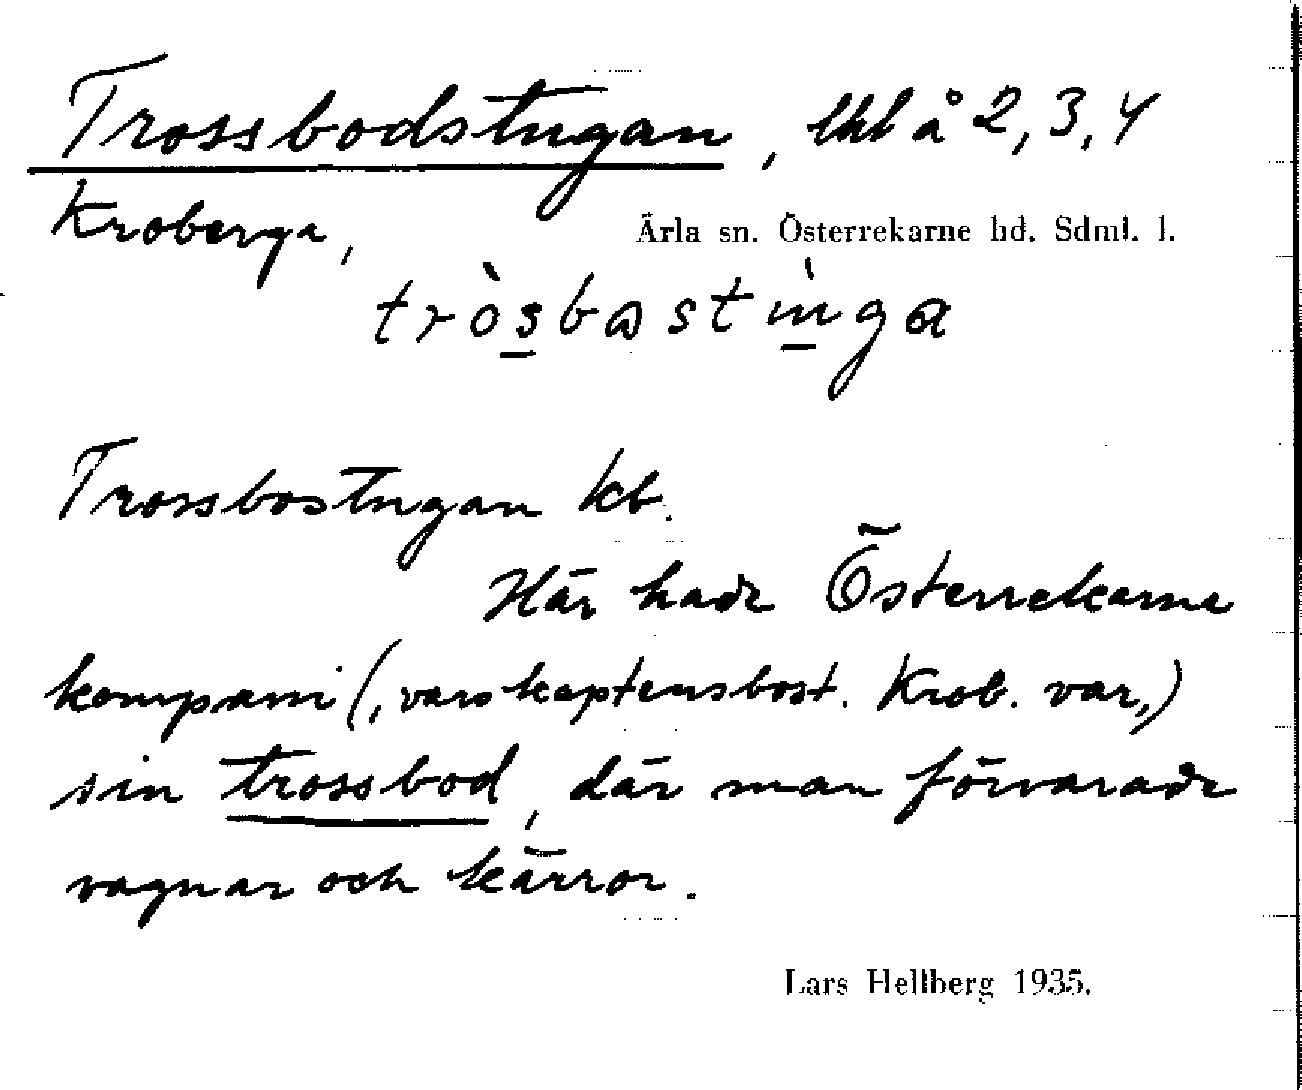 Trossbodstugan, lhl å 2, 3, 4
Kroberga,
Ärla sn. Österrekarne hd. Sdml. l.
Trossbostugan kb.
Här hade Österrekarne
kompani (, vars kaptensbost. Krob. var,)
sin trossbod, där man förvarade
vagnar och kärror.
Lars Hellberg 1935.